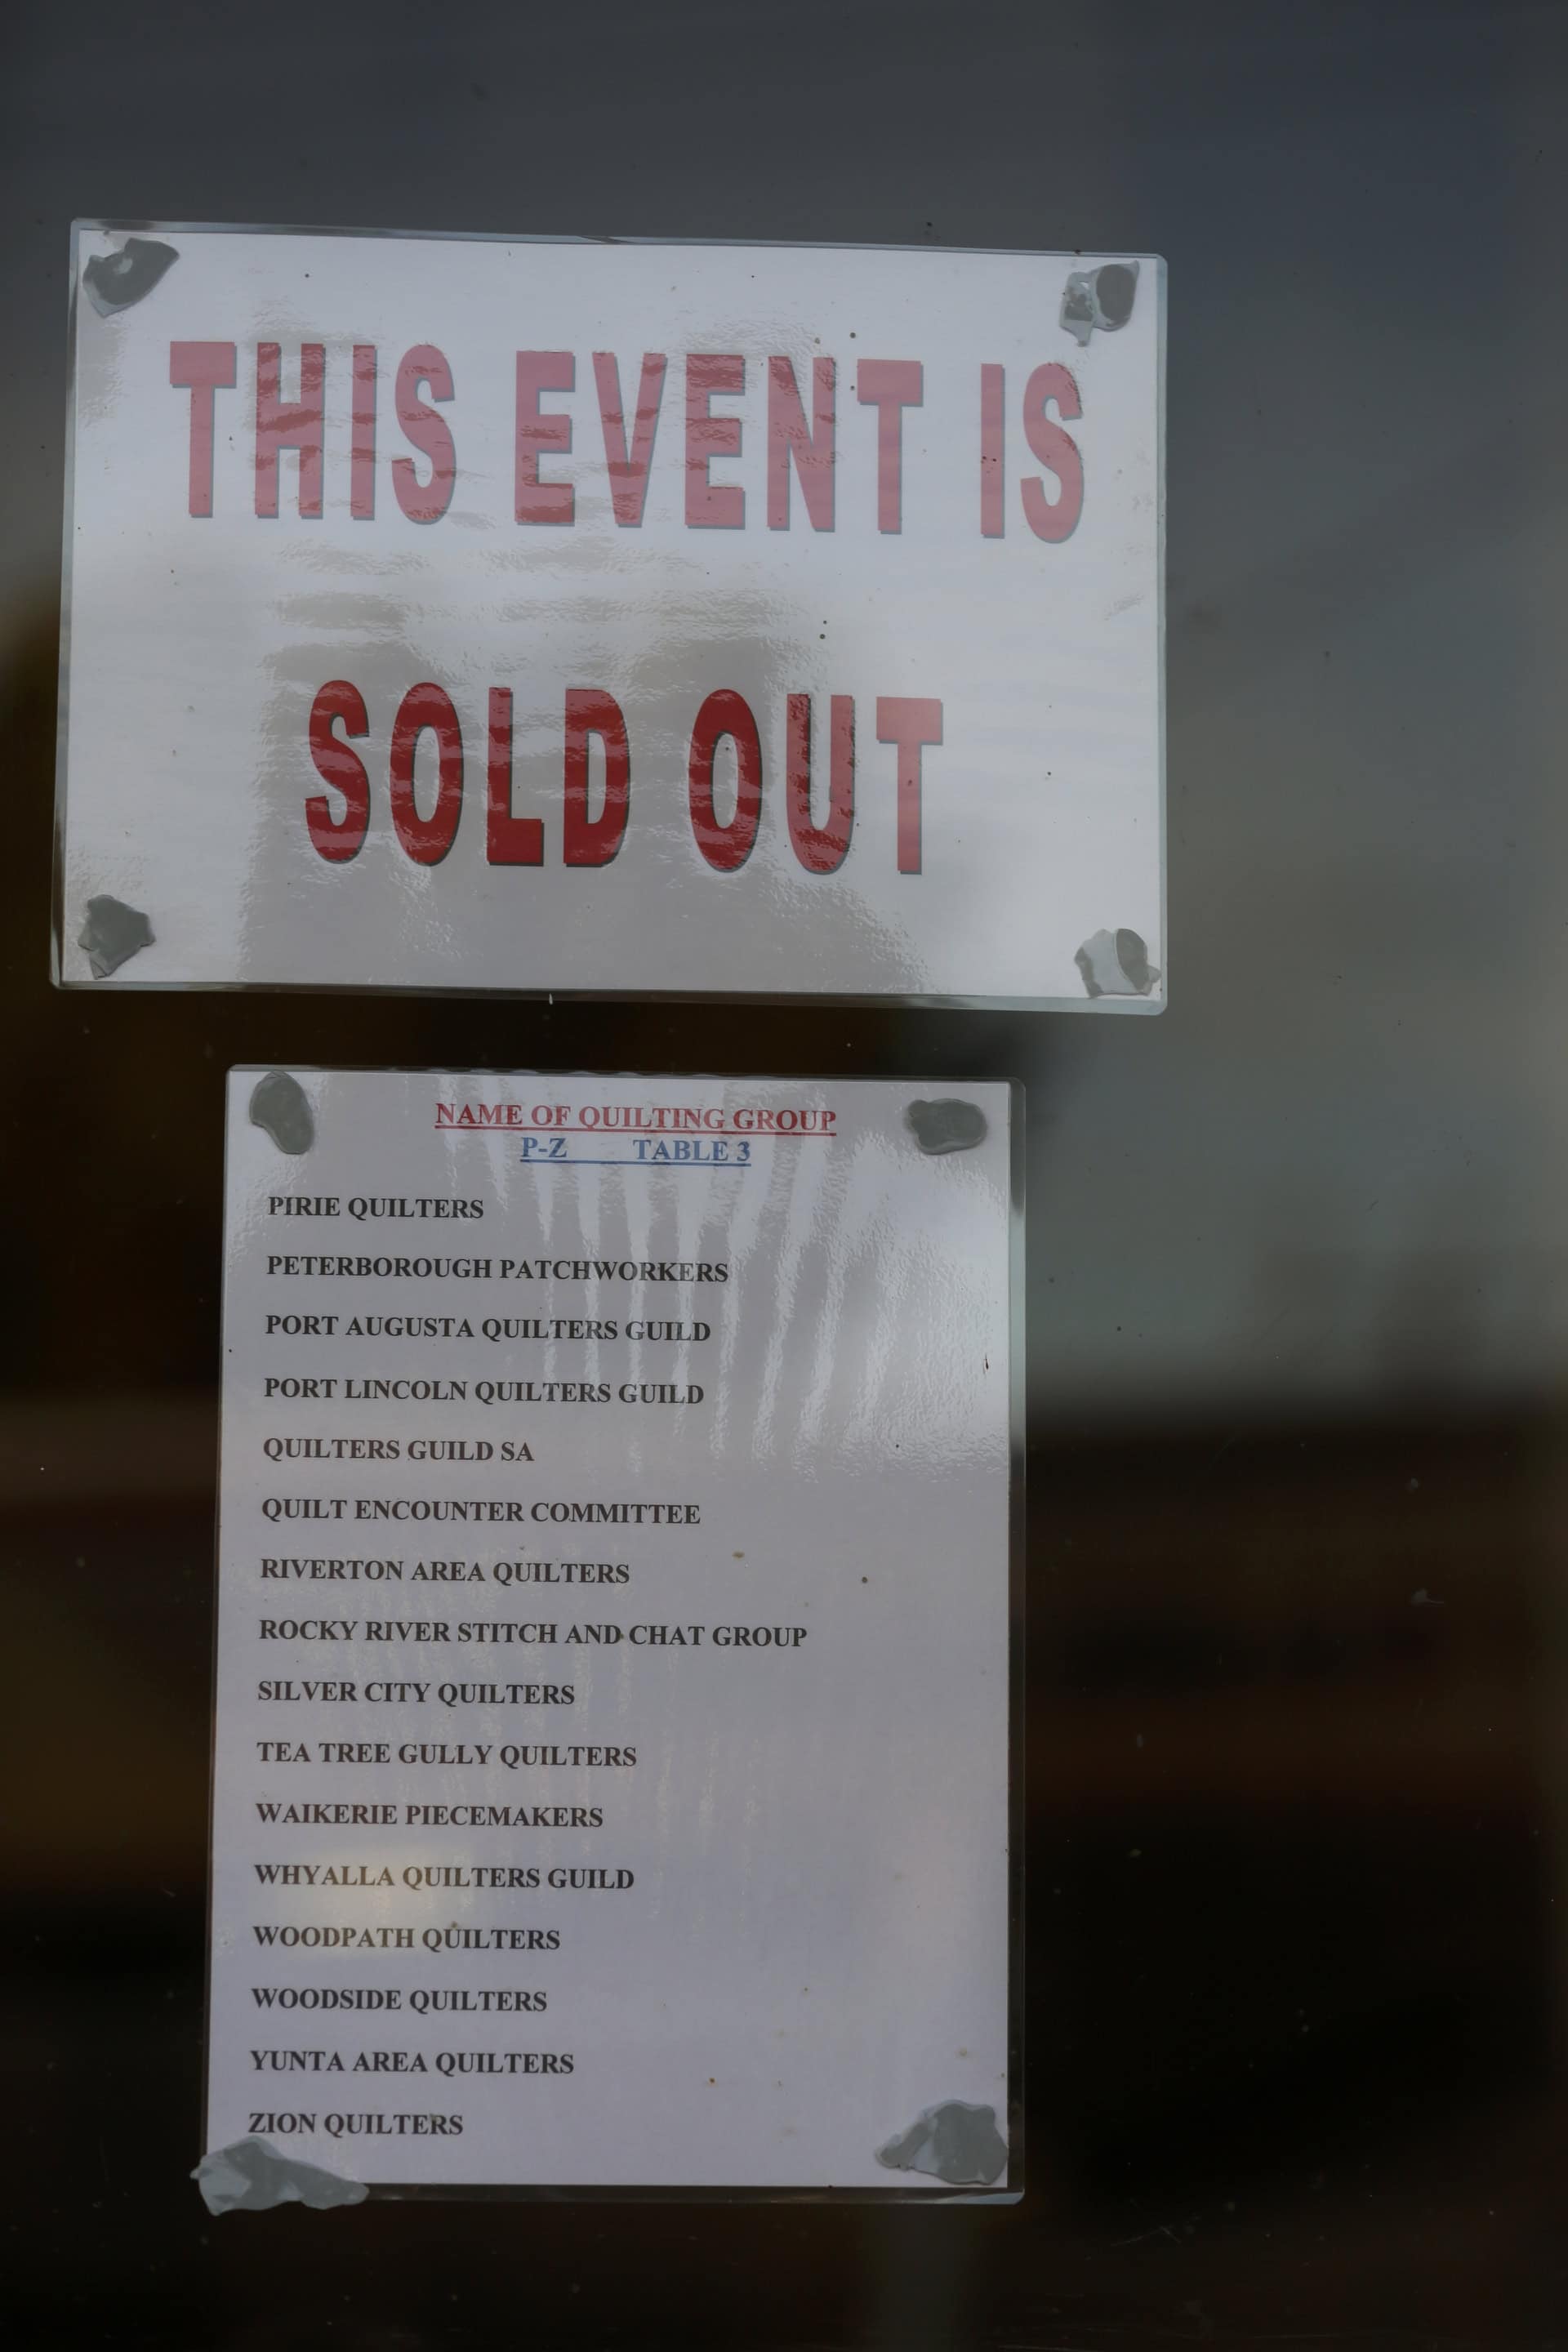 THIS EVENT IS
SOLD OUT
NAME OF QUILTING GROUP
P-Z TABLE 3
PIRIE QUILTERS
PETERBOROUGH PATCHWORKERS
PORT AUGUSTA QUILTERS GUILD
PORT LINCOLN QUILTERS GUILD
QUILTERS GUILD SA
QUILT ENCOUNTER COMMITTEE
RIVERTON AREA QUILTERS
ROCKY RIVER STITCH AND CHAT GROUP
SILVER CITY QUILTERS
TEA TREE GULLY QUILTERS
WAIKERIE PIECEMAKERS
WHYALLA QUILTERS GUILD
WOODPATH QUILTERS
WOODSIDE QUILTERS
YUNTA AREA QUILTERS
ZION QUILTERS